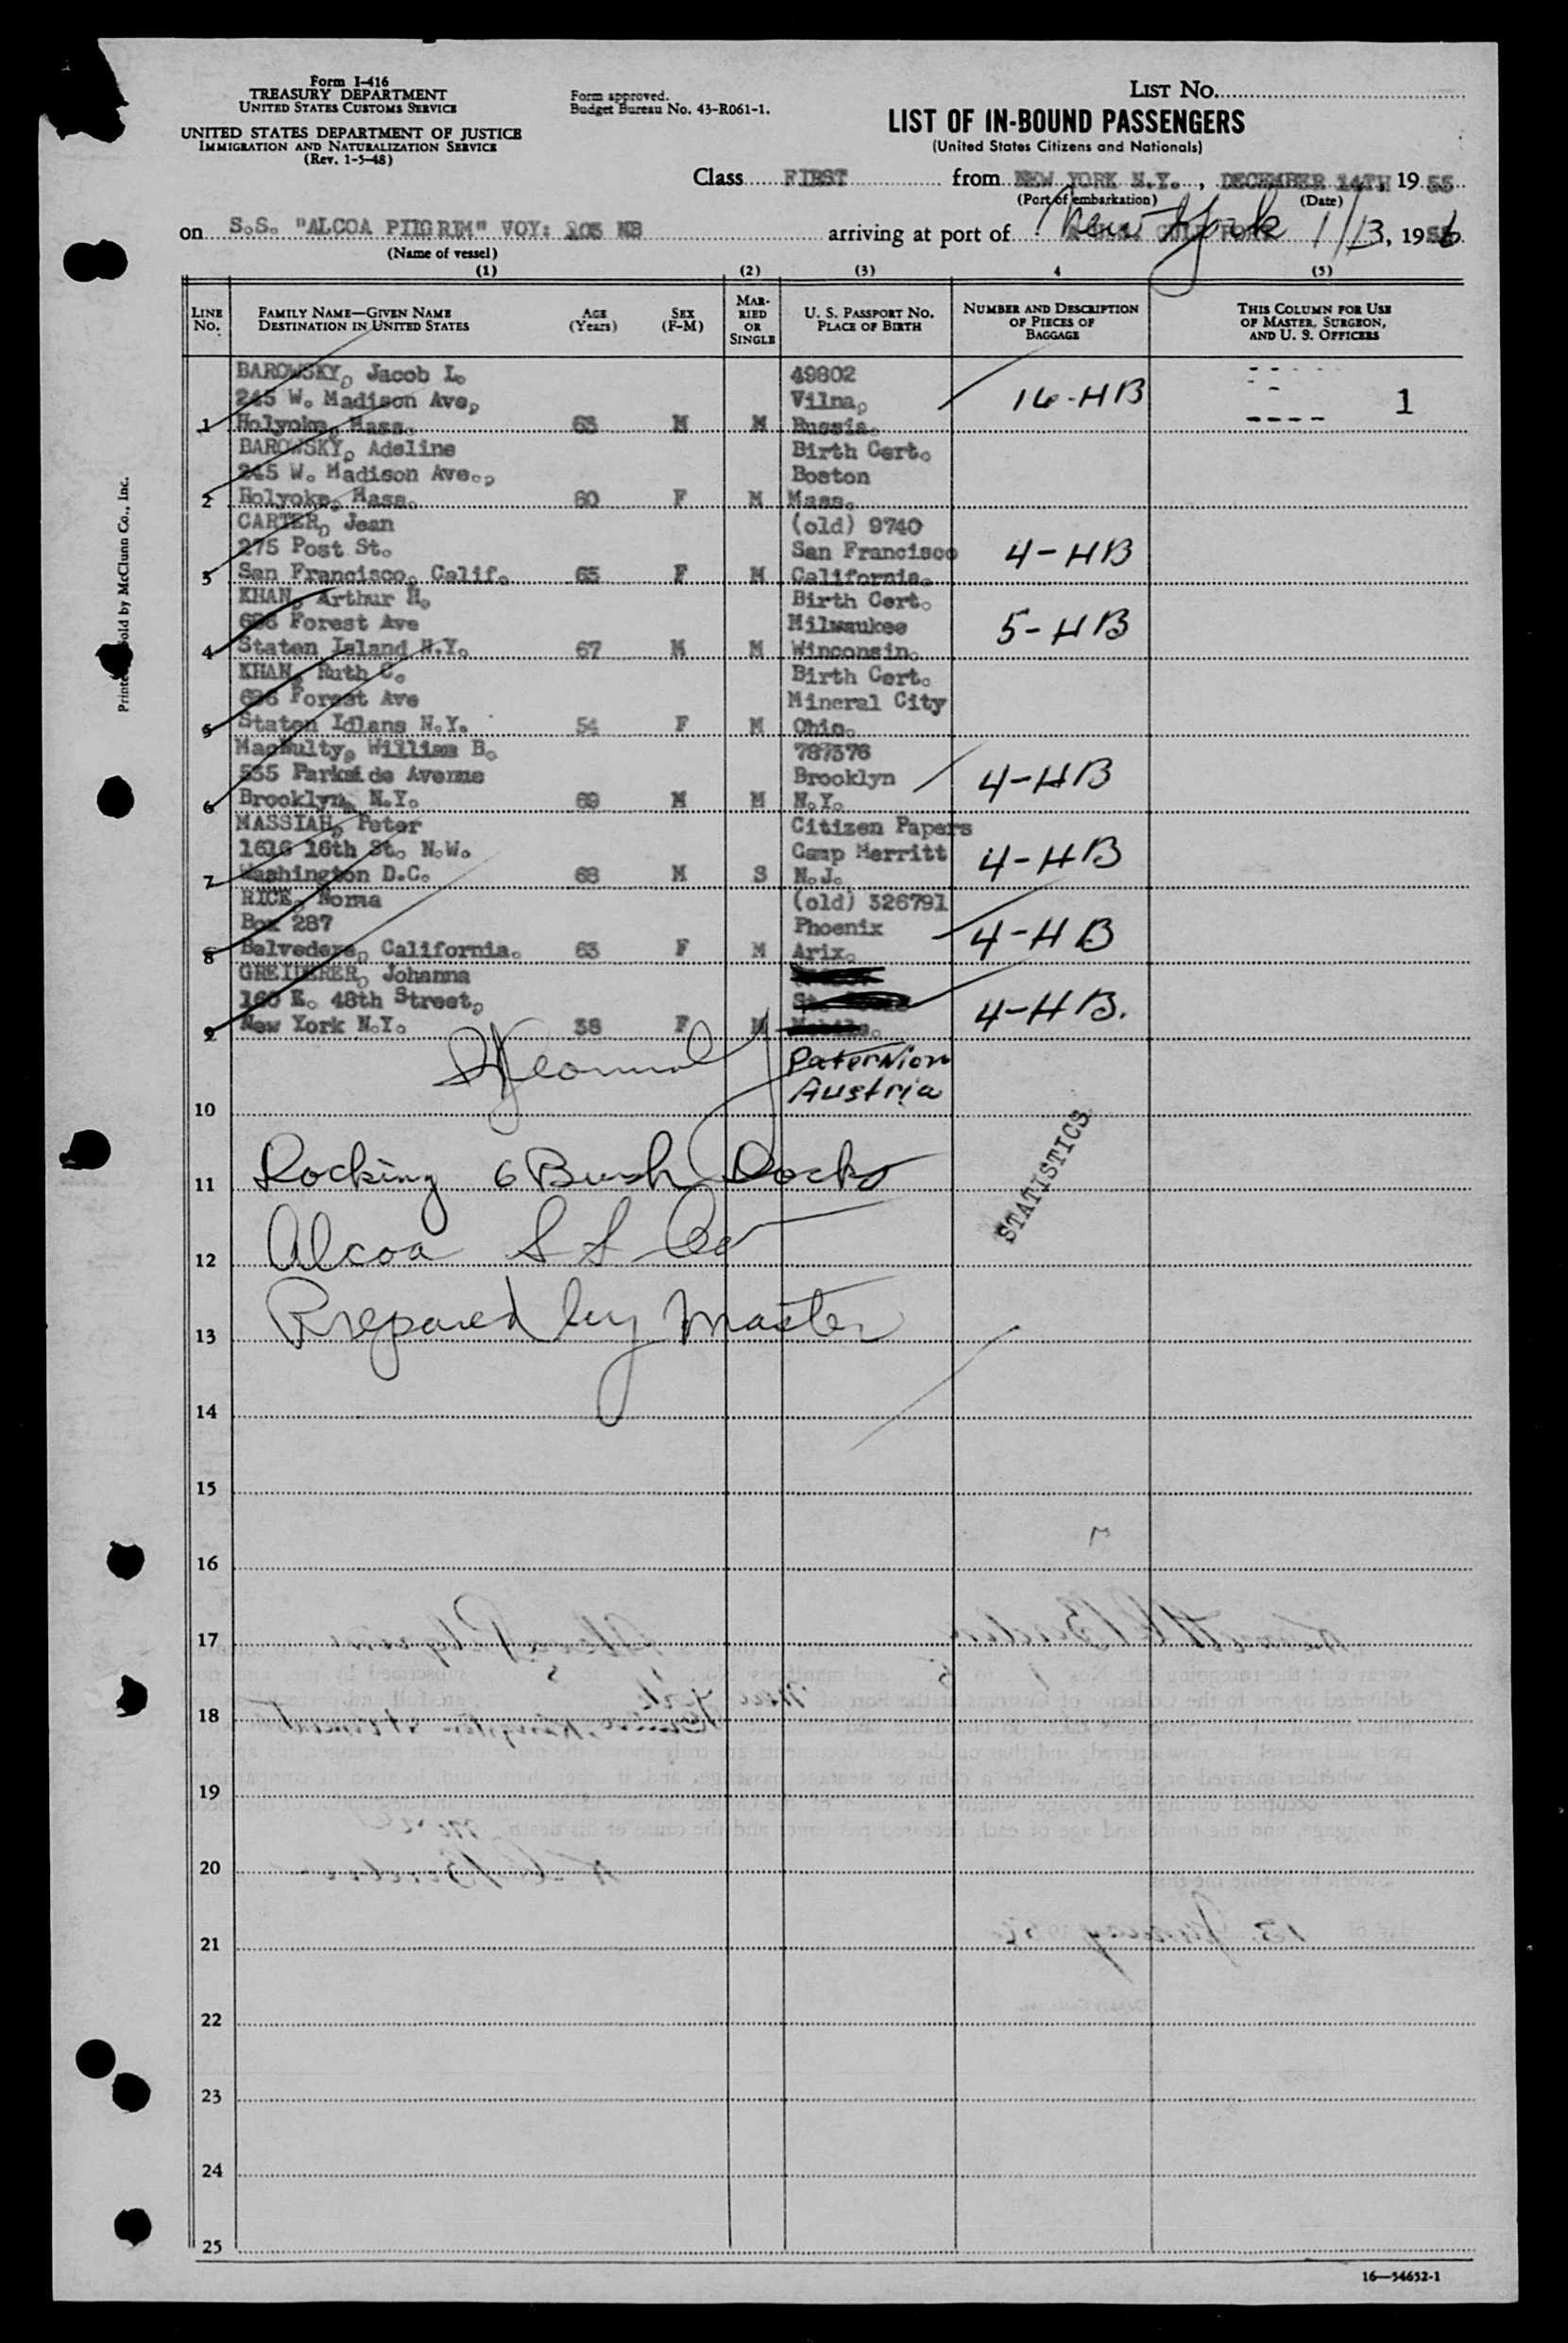 Form I-416
TREASURY DEPARTMENT
UNITED STATES CUSTOMS SERVICE
UNITED STATES DEPARTMENT OF JUSTICE
IMMIGRATION AND NATURALIZATION SERVICE
(Rev. 1-5-48)
Form approved.
Budget Bureau No. 43-R061-1.
LIST NO.
LIST OF IN-BOUND PASSENGERS
(United States Citizens and Nationals)
Class FIRST from NEW YORK N.Y., DECEMBER 14TH 19 55
(Port of embarkation) (Date)
on S.S. "ALCOA PILGRIM" VOY: NB arriving at port of New York 1/13, 1956
(Name of vessel)
(1) (2) (3) 4 (5)
LINE No. FAMILY NAME—GIVEN NAME DESTINATION IN UNITED STATES AGE (Years) SEX (F-M) MARRIED OR SINGLE U. S. PASSPORT NO. PLACE OF BIRTH NUMBER AND DESCRIPTION OF PIECES OF BAGGAGE THIS COLUMN FOR USE OF MASTER, SURGEON, AND U. S. OFFICERS
BAROWSKY, Jacob L. 49802
245 W. Madison Ave, Vilna, 16-HB 1
1 Holyoke, Mass. 63 M M Russia.
BAROWSKY, Adeline Birth Cert.
245 W. Madison Ave., Boston
2 Holyoke, Mass. 60 F M Mass.
CARTER, Jean (old) 9740
275 Post St. San Francisco 4-HB
3 San Francisco, Calif. 65 F M California.
KHAN, Arthur H. Birth Cert.
Forest Ave Milwaukee 5-HB
4 Staten Island N.Y. 67 M M Winconsin.
KHAN, Ruth C. Birth Cert.
Forest Ave Mineral City
5 Staten Idlans N.Y. 54 F M Ohio.
MacNulty, William B. 787376
535 Parkside Avenue Brooklyn 4-HB
6 Brooklyn, N.Y. 69 M M N.Y.
MASSIAH, Peter Citizen Papers
1616 16th St. N.W. Camp Merritt 4-HB
7 Washington D.C. 68 M S N.J.
RICE, Norma (old) 326791
Box 287 Phoenix 4-HB
8 Belvedere, California. 63 F M Arix.
GREIDERER, Johanna
160 E. 48th Street, St. 4-HB.
9 New York N.Y. 38 F M
Paternion
10 Austria
STATISTICS
11 Docking 6 Bush Docks
12 Alcoa S S Co
13 Prepared by Master
14
15
16
17
18
19
20
21
22
23
24
25
16—54652-1
Sold by McClunn Co., Inc.